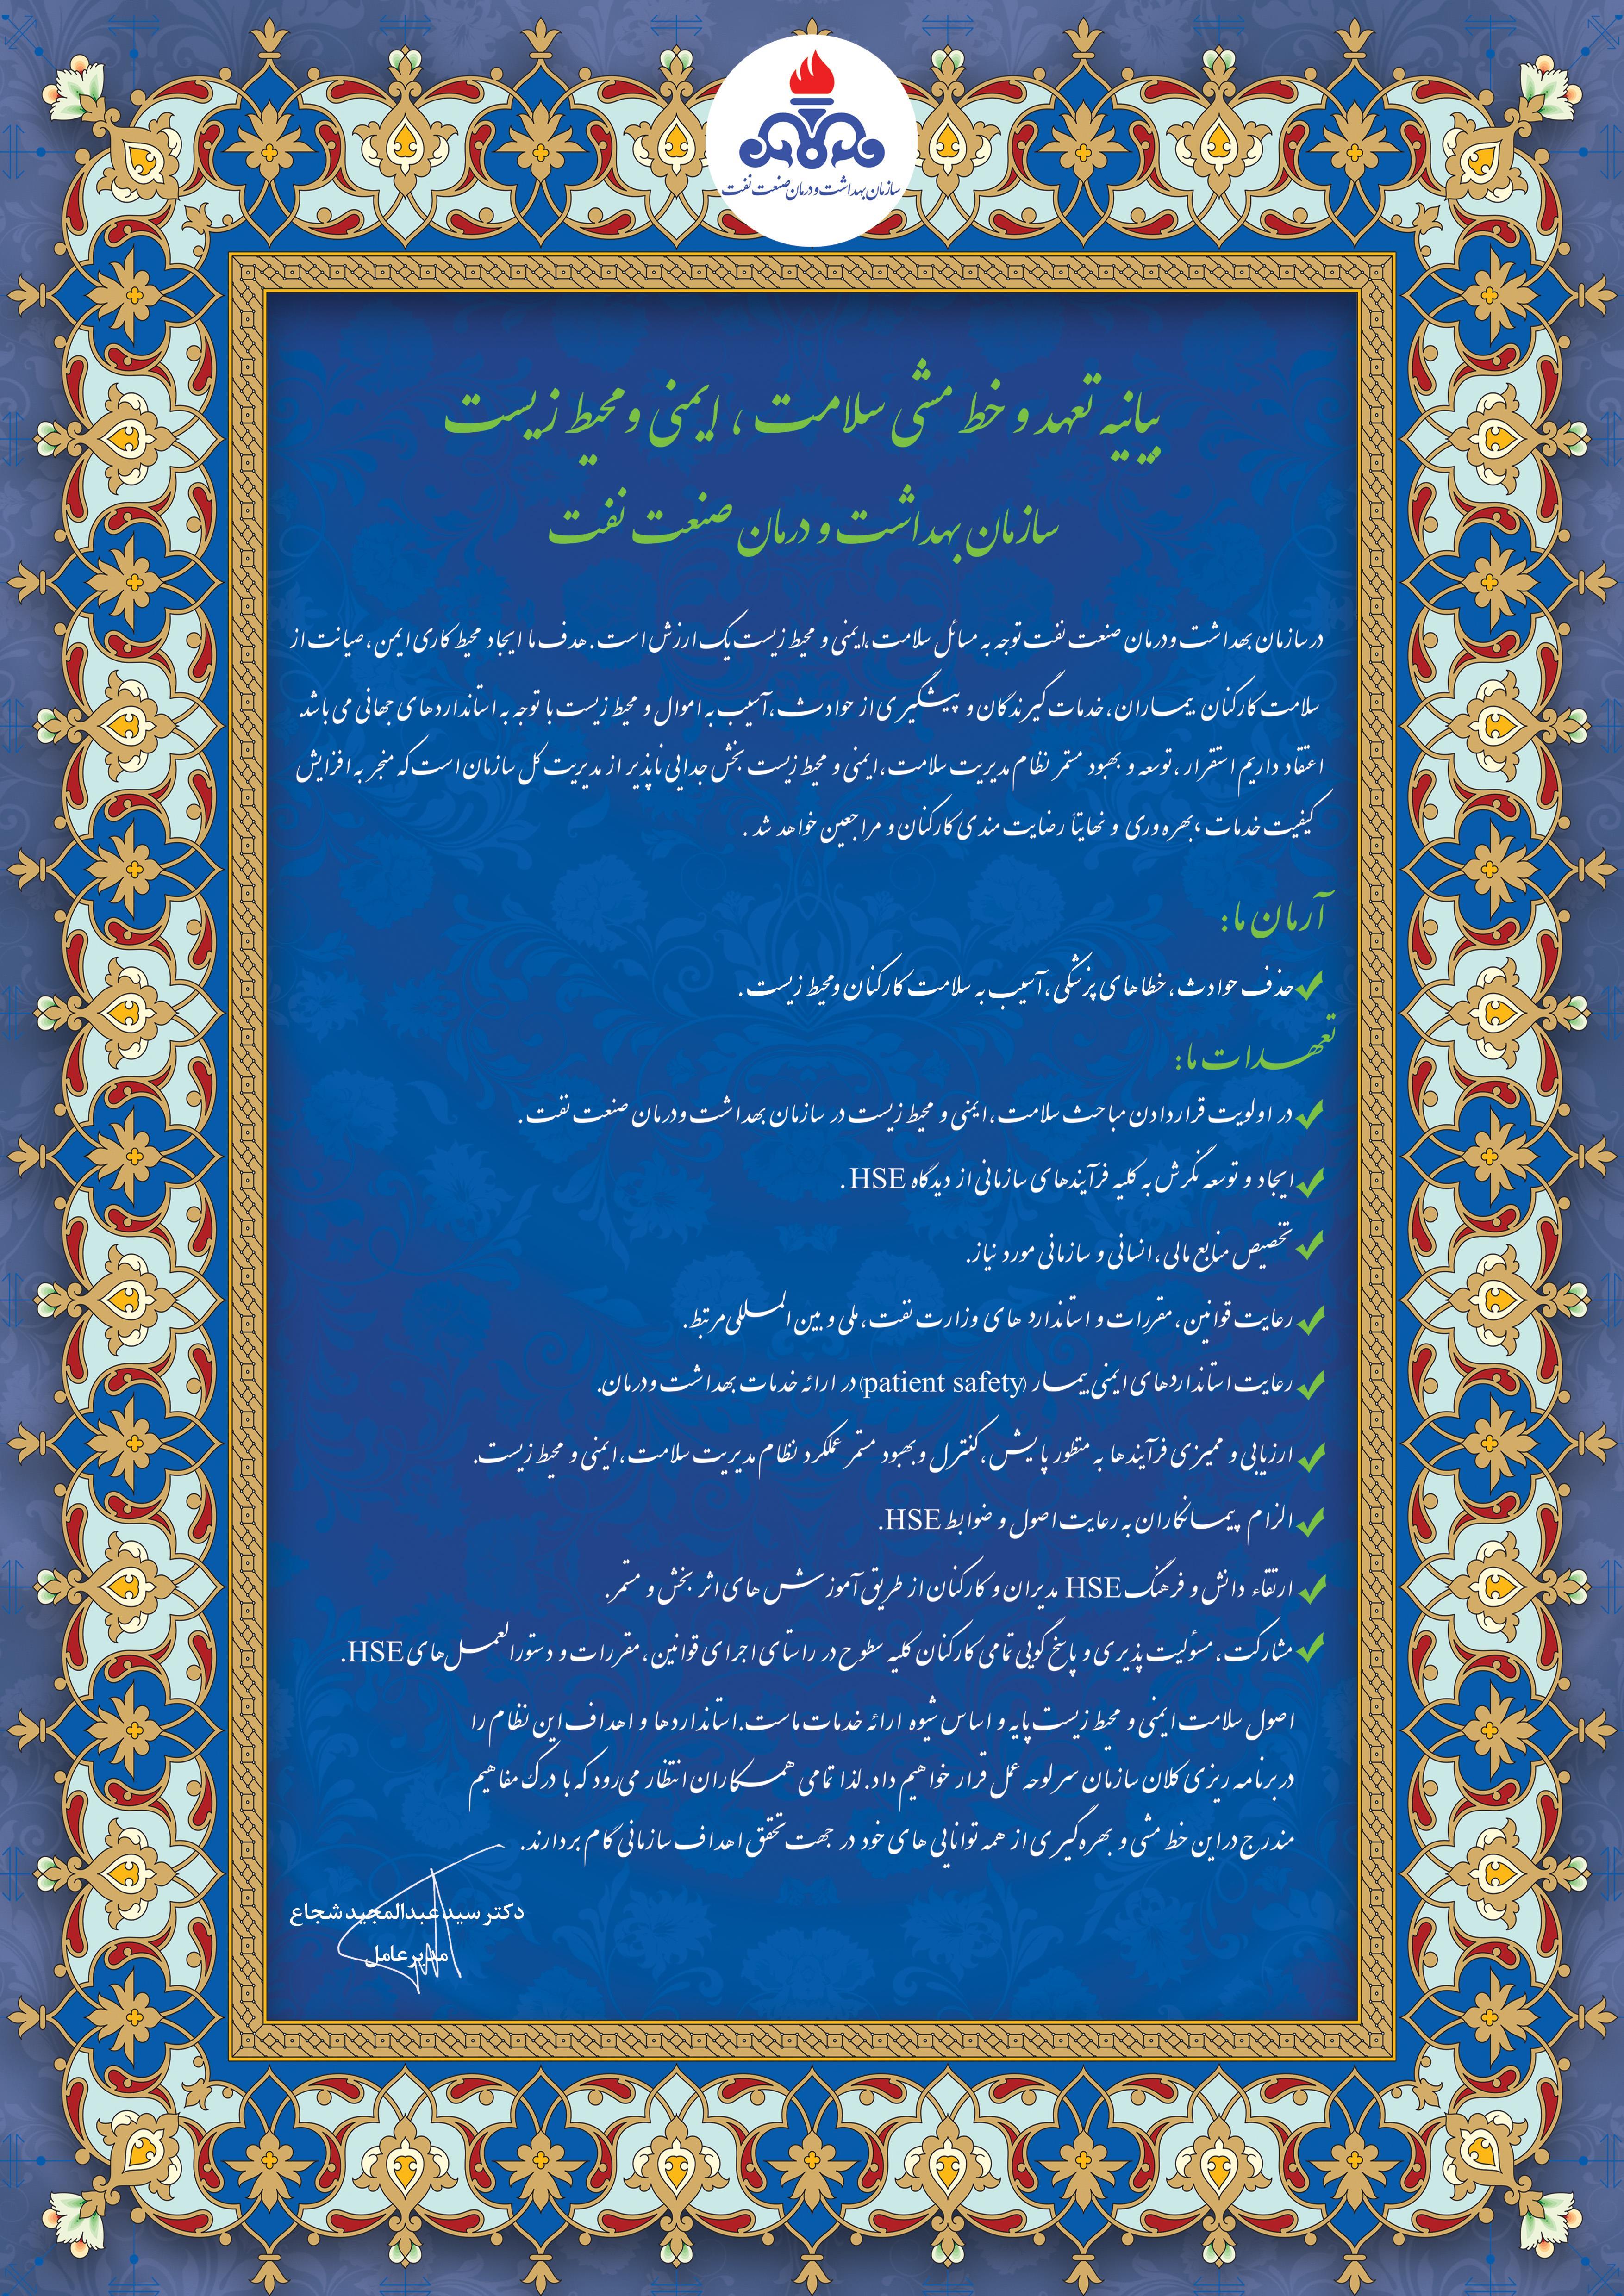 سازمان بهداشت و درمان صنعت نفت
بیانیه تعهد و خط مشی سلامت ، ایمنی و محیط زیست
سازمان بهداشت و درمان صنعت نفت
در سازمان بهداشت ودرمان صنعت نفت توجه به مسائل سلامت ،ایمنی و محیط زیست یک ارزش است. هدف ما ایجاد محیط کاری ایمن ، صیانت از
سلامت کارکنان بیماران، خدمات گیرندگان و پیشگیری از حوادث ،آسیب به اموال و محیط زیست با توجه به استانداردهای جهانی می باشد
اعتقاد داریم استقرار ،توسعه و بهبود مستمر نظام مدیریت سلامت ،ایمنی و محیط زیست بخش جدایی ناپذیر از مدیریت کل سازمان است که منجر به افزایش
کیفیت خدمات ،بهره وری و نهایتاً رضایت مندی کارکنان و مراجعین خواهد شد .
آرمان ما:
حذف حوادث، خطاهای پزشکی ،آسیب به سلامت کارکنان ومحیط زیست .
تعهدات ما:
در اولویت قراردادن مباحث سلامت ،ایمنی و محیط زیست در سازمان بهداشت ودرمان صنعت نفت .
ایجاد و توسعه نگرش به کلیه فرآیندهای سازمانی از دیدگاه HSE .
تخصیص منابع مالی ،انسانی و سازمانی مورد نیاز.
رعایت قوانین ،مقررات و استاندارد های وزارت نفت ،ملی و بین المللی مرتبط.
رعایت استانداردهای ایمنی بیمار (patient safety) در ارائه خدمات بهداشت ودرمان.
ارزیابی و ممیزی فرآیندها به منظور پایش ،کنترل و بهبود مستمر عملکرد نظام مدیریت سلامت ،ایمنی و محیط زیست.
الزام پیمانکاران به رعایت اصول و ضوابط HSE.
ارتقاء دانش و فرهنگ HSE مدیران و کارکنان از طریق آموزش های اثر بخش و مستمر.
مشارکت ، مسئولیت پذیری و پاسخ گویی تمامی کارکنان کلیه سطوح در راستای اجرای قوانین ،مقررات و دستورالعمل های HSE.
اصول سلامت ایمنی و محیط زیست پایه و اساس شیوه ارائه خدمات ماست.استانداردها و اهداف این نظام را
در برنامه ریزی کلان سازمان سرلوحه عمل قرار خواهیم داد. لذا تمامی همکاران انتظار می رود که با درک مفاهیم
مندرج در این خط مشی و بهره گیری از همه توانایی های خود در جهت تحقق اهداف سازمانی گام بردارند.
دکتر سید عبدالمجید شجاع
مدیر عامل